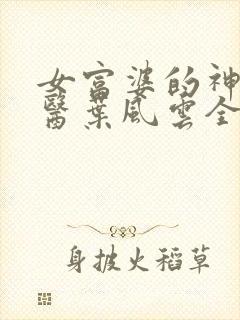 女富婆的神
醫葉風雲全
身披火稻草